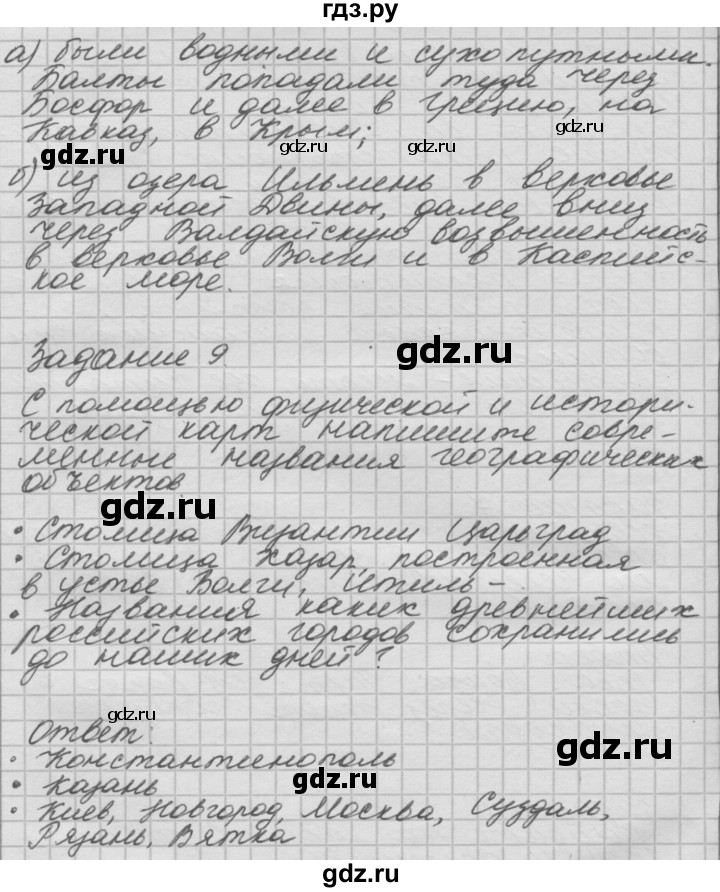 гдз.ру
а) были водными и сухопутными.
Балты попадали туда через
Босфор и далее в Грецию, на
Кавказ, в Крым;
gdz.ru gdz.ru gdz.ru
б) из озера Ильмень в верховье
Западной Двины, далее вниз
через Валдайскую возвышенность
в верховье Волги и в Каспийс-
кое море.
gdz.ru
Задание 9
gdz.ru
С помощью физической и истори-
ческой карт напишите совре-
менные названия географических
объектов
gdz.ru
• Столица Византии Царьград
• Столица хазар, построенная
в устье Волги, Итиль –
• Названия каких древнейших
российских городов сохранились
до наших дней?
gdz.ru
Ответ:
gdz.ru
• Константинополь
• Казань
gdz.ru
• Киев, Новгород, Москва, Суздаль,
Рязань, Вятка
gdz.ru
gdz.ru